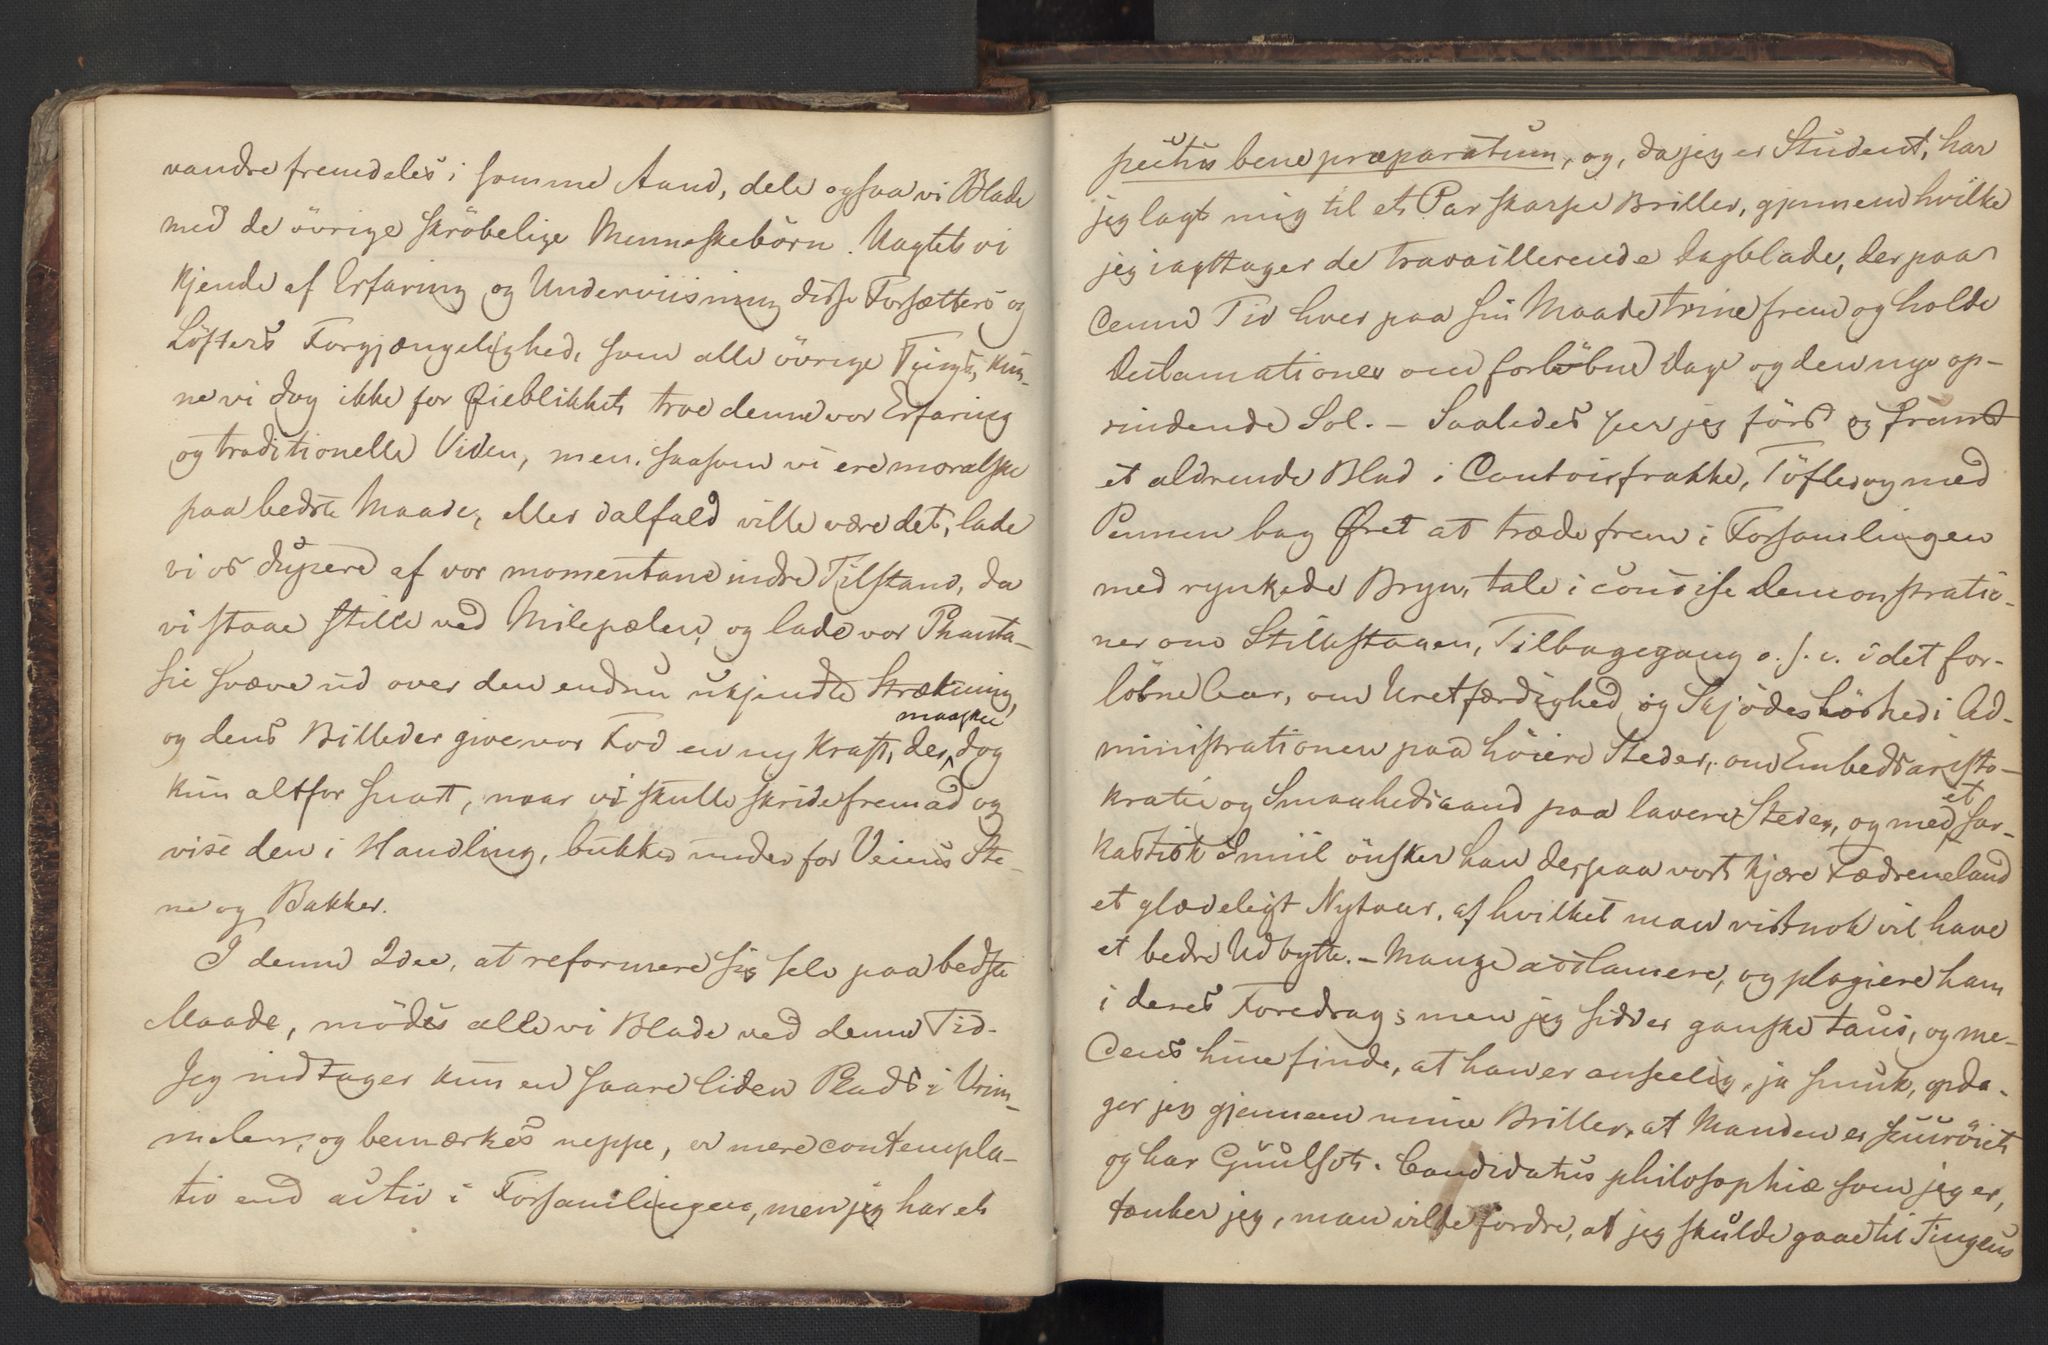 vandre fremdeles i samme Aand, dele ogsaa vi Blade
med de övrige skröbelige Menneskebörn. Uagtet vi
kjende af Erfaring og Underviisning disse Forsætters og
Löfters Forgjængelighed, som alle övrige Tings, kun-
ne vi dog ikke for Øieblikket troe denne vor Erfaring
og traditionelle Viden, men, saasom vi ere moralske
paa bedste Maade, eller ialfald ville være det, lade
vi os dupere af vor momentane indre Tilstand, da
vi staae stille ved Milepælen, og lade vor Phanta-
sie svæve ud over den endnu ukjendte Strækning,
og dens Billeder give vor Fod en ny Kraft, der maaskee dog
kun altfor snart, naar vi skulle skride fremad og
vise den i Handling, bukker under for Veiens Ste-
ne og Bakker.
I denne Idee, at reformere sig selv paa bedste
Maade, mödes alle vi Blade ved denne Tid.
Jeg indtager kun en saare liden Plads i Vrim-
melen, og bemærkes neppe, er mere contempla-
tiv end activ i Forsamlingen, men jeg har et
pectus bene præparatum, og, da jeg er Student, har
jeg lagt mig til et Par skarpe Briller, gjennem hvilke
jeg iagttager de travaillerende Dagblade, der paa
denne Tid hver paa sin Maade trine frem og holde
Declamationer om forløbne Dage og den nye op-
rindende Sol. - Saaledes seer jeg först og fremst
et aldrende Blad i Contoirfrakke, Töfler og med
Pennen bag Øret at træde frem i Forsamlingen
med rynkede Bryn, tale i concise Demonstratio-
ner om Stillestaaen, Tilbagegang o. s. v. i det for-
löbne Aar, om Uretfærdighed og Skjödeslöshed i Ad-
ministrationen paa höiere Steder, om Embedsaristo-
kratie og Smaahedsaand paa lavere Steder, og med et sar-
kastisk Smiil önsker han derpaa vort kjære Fædreneland
et glædeligt Nytaar, af hvilket man vistnok vil have
et bedre Udbytte. - Mange acclamere, og plagiere ham
i deres Foredrag; men jeg sidder ganske taus, og me-
dens hine finde, at han er anseelig, ja smuk, opda-
ger jeg gjennem mine Briller, at Manden er suurøiet
og har Guulsot. Candidatus philosophiæ som jeg er,
tænker jeg, man vilde fordre, at jeg skulde gaae til Tingens